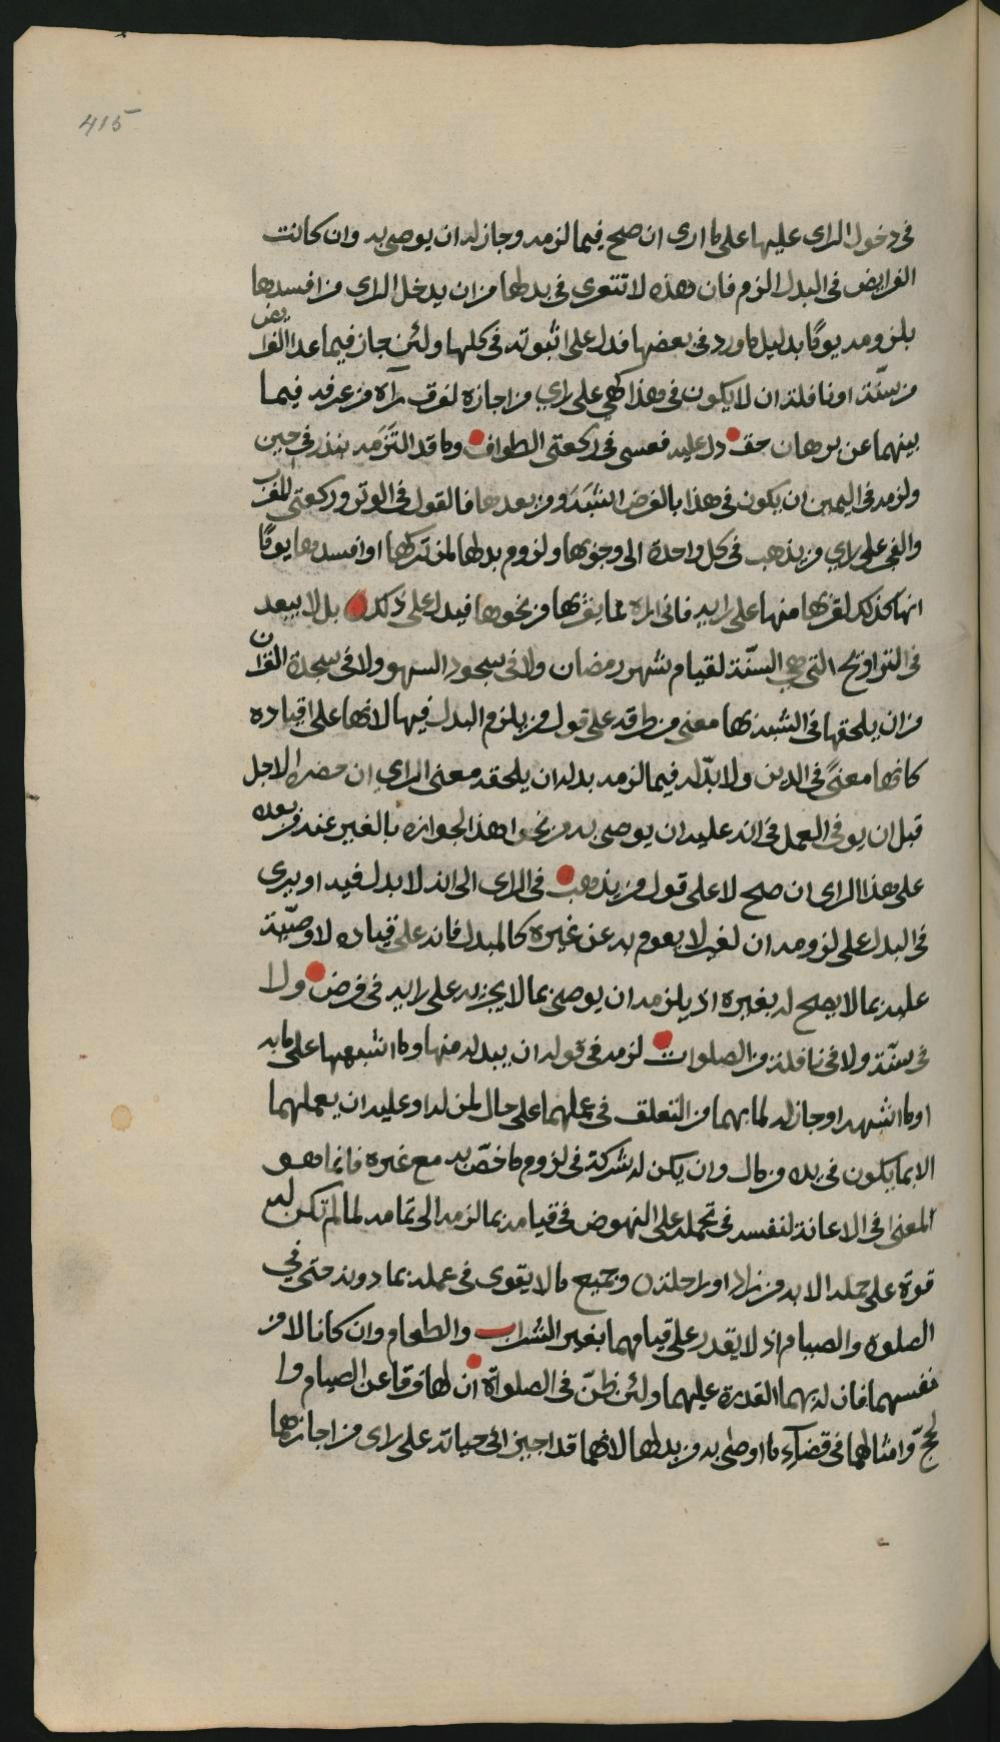 415
في دخول الراى عليها على ما ارى ان صح فيما لزمه وجاز له ان يوصى به وان كانت
الفرايض في البدل الزم فان هذه لا تتعرى في بدلها من ان يدخل الراى من افسدها
بلزومه يومًا بدليل ما ورد في بعضها فدل على اثبوته في كلها ولئن جاز فيما عدا الفرايض
من سنّة او نافلة ان لا يكون في هذا كهي على راي من اجازه لفرق رآه من عرفه فيما
بينهما عن برهان حق دل عليه فعسى في ركعتى الطواف وما قد التزمه بنذر في حين
ولزمه في اليمين ان يكون في هذا بالفرض اشبه ومن بعدها فالقول في الوتر وركعتى المغرب
والفجر على راي من يذهب في كل واحدة الى وجوبها ولزوم بدلها لمن تركها او افسدها يومًا
انها كذلك لقربها منها على رايه فاني اراه لما يقربها من نحوها فيدل على ذلك بل لا يبعد
في التراويح التى هي السنّة لقيام شهر رمضان ولا في سجود السهو ولا في سجدة القران
من ان يلحقها في الشبه بها معنى من طرقه على قول من يلزم البدل فيها لانها على اقياده
كانها معنىً في الدين ولا بدّ له فيما لزمه بدله ان يلحقه معنى الراي ان حضره الاجل
قبل ان يوفى العمل في انه عليه ان يوصى به ومن نحو هذا الجوازه بالغير عنه من بعده
على هذا الراى ان صح لا على قول من يذهب في الراى الى انه لا بدل فيه او يرى
في البدل على لزومه ان لغير لا يقوم به عن غيره كالمبدل فانه على قياده لا وصيّة
عليه بما لا يصح له بغيره اذ يلزمه ان يوصى بما لا يجزيه على رايه في فرض ولا
في سنّة ولا في نافلة من الصلوات لزمه في قوله ان يبدله منها وما اشبهها على ما به
او ما اشبهه او جاز له لما بهما من التعلق في عملهما على حال لمن له او عليه ان يعملهما
الا بما يكون في يده من مال وان يكن له شركة في لزوم ما خصّ به مع غيره فانما هو
المعنى في الاعانة لنفسه في تحمله على النهوض في قيامه بما لزمه الى تمامه لما لم تكن له
قوة على حمله الا به من زاد او راحلة ومن جميع ما لا يقوى في عمله بما دونه حتى في
الصلوة والصيام اذ لا يقدر على قيامهما بغير الشراب والطعام وان كانا لا من
نفسهما فان له بهما القدرة عليهما ولئن ظنّ في الصلواة ان لها فرقا عن الصيام وا
لحجّ وامثالهما في قضآء ما اوصى به من بدلها لانهما قد اجيزا في حياته على راى من اجازهما